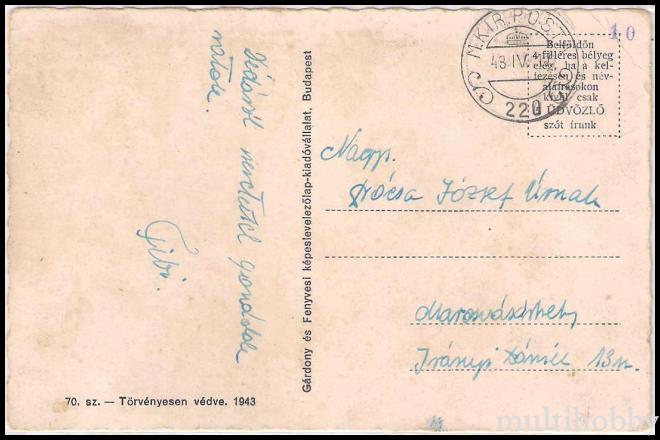 M. KIR. POSTA
43 IV.
220
10
Belföldön
4 filléres bélyeg
elég, ha a kel-
tezésen és név-
aláírásokon
kívül csak
ÜDVÖZLŐ
szót írunk
szeretettel gondolok
rátok.
Tibi.
Gárdony és Fenyvesi képeslevelezőlap-kiadóvállalat, Budapest
Nagys.
Drócsa József Úrnak
Marosvásárhely
Irányi Dániel 13 sz.
70. sz. — Törvényesen védve. 1943
multihobby